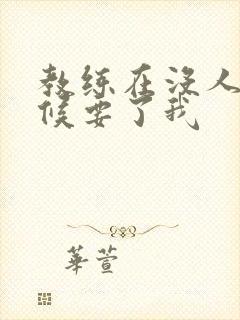 教练在没人
候要了我
華萱